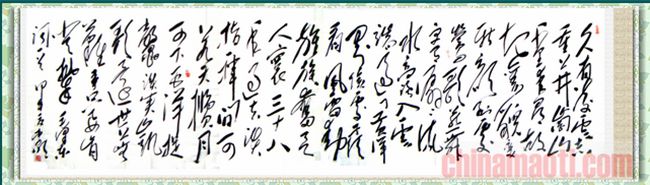 久有凌云志
重上井岗山
千里来寻故
地旧貌变
新颜到处
莺歌燕舞
更有潺潺流
水高路入云
端过了黄洋
界险处不须
看风雷动
旌旗奋是
人寰三十八
年过去弹
指一挥间可
上九天揽月
可下五洋捉
鳖谈笑凯
歌还世上无
难事只要肯
登攀毛泽东
chinamaoti.com